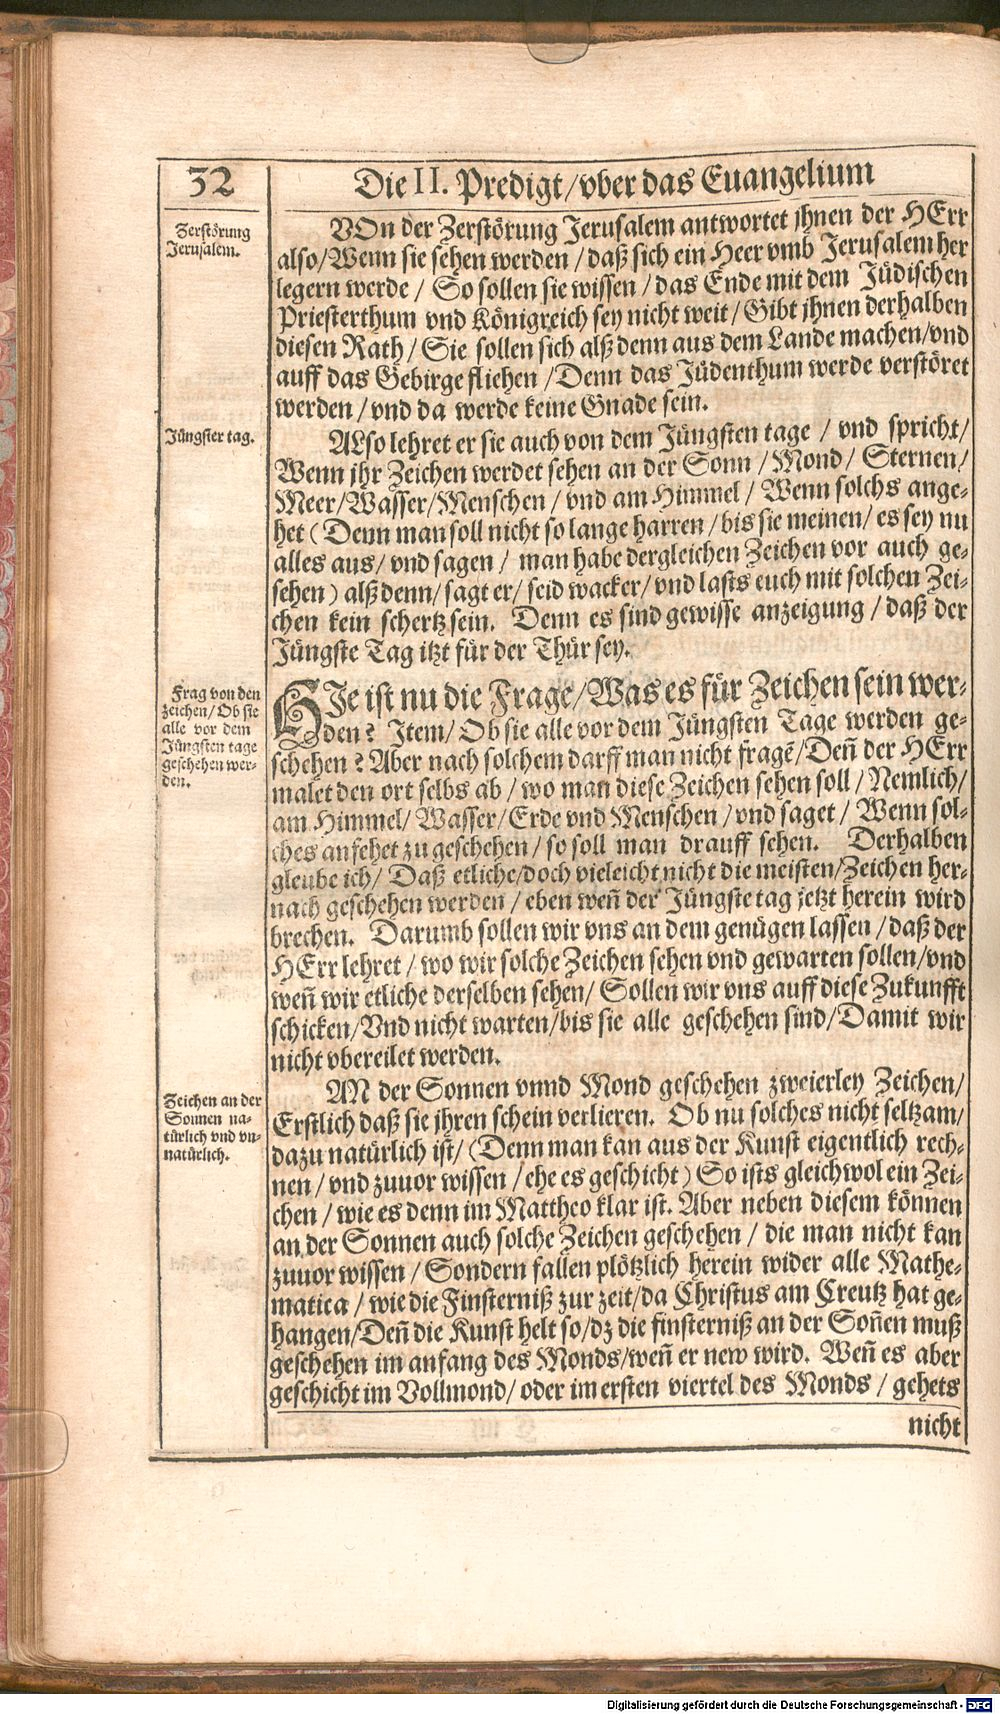 32
Die II. Predigt/vber das Euangelium
Zerstörung
Jerusalem.
VOn der Zerstörung Jerusalem antwortet jhnen der HErr
also/Wenn sie sehen werden/daß sich ein Heer vmb Jerusalem her
legern werde/ So sollen sie wissen/das Ende mit dem Jüdischen
Priesterthum vnd Königreich sey nicht weit/Gibt jhnen derhalben
diesen Rath/Sie sollen sich alß denn aus dem Lande machen/vnd
auff das Gebirge fliehen/Denn das Jüdenthum werde verstöret
werden/vnd da werde keine Gnade sein.
Jüngster tag.
ALso lehret er sie auch von dem Jüngsten tage/ vnd spricht/
Wenn jhr Zeichen werdet sehen an der Sonn/Mond/ Sternen/
Meer/Wasser/Menschen/vnd am Himmel/ Wenn solchs ange-
het (Denn man soll nicht so lange harren/bis sie meinen/es sey nu
alles aus/vnd sagen/ man habe dergleichen Zeichen vor auch ge-
sehen) alß denn/sagt er/seid wacker/vnd lasts euch mit solchen Zei-
chen kein schertz sein. Denn es sind gewisse anzeigung/daß der
Jüngste Tag itzt für der Thür sey.
Frag von den
zeichen/Ob sie
alle vor dem
Jüngsten tage
geschehen wer-
den.
HJe ist nu die Frage/Was es für Zeichen sein wer-
den? Item/Ob sie alle vor dem Jüngsten Tage werden ge-
schehen? Aber nach solchem darff man nicht fragē/Deñ der HErr
malet den ort selbs ab/wo man diese Zeichen sehen soll/Nemlich/
am Himmel/Wasser/Erde vnd Menschen/vnd saget/ Wenn sol-
ches anfehet zu geschehen/so soll man drauff sehen. Derhalben
gleube ich/ Daß etliche/doch vieleicht nicht die meisten/Zeichen her-
nach geschehen werden/eben weñ der Jüngste tag jetzt herein wird
brechen. Darumb sollen wir vns an dem genügen lassen/daß der
HErr lehret/wo wir solche Zeichen sehen vnd gewarten sollen/vnd
weñ wir etliche derselben sehen/ Sollen wir vns auff diese Zukunfft
schicken/Vnd nicht warten/bis sie alle geschehen sind/Damit wir
nicht vbereilet werden.
Zeichen an der
Sonnen na-
türlich vnd vn-
natürlich.
AN der Sonnen vnnd Mond geschehen zweierley Zeichen/
Erstlich daß sie ihren schein verlieren. Ob nu solches nicht seltzam/
dazu natürlich ist/(Denn man kan aus der Kunst eigentlich rech-
nen/vnd zuuor wissen/ehe es geschicht) So ists gleichwol ein Zei-
chen/wie es denn im Mattheo klar ist. Aber neben diesem können
an der Sonnen auch solche Zeichen geschehen/ die man nicht kan
zuuor wissen/Sondern fallen plötzlich herein wider alle Mathe-
matica/wie die Finsterniß zur zeit/da Christus am Creutz hat ge-
hangen/Deñ die Kunst helt so/dz die finsterniß an der Soñen muß
geschehen im anfang des Monds/weñ er new wird. Weñ es aber
geschicht im Vollmond/oder im ersten viertel des Monds/gehets
nicht
Digitalisierung gefördert durch die Deutsche Forschungsgemeinschaft - DFG